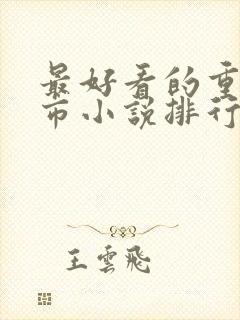 最好看的重
市小説排行
王雲飛